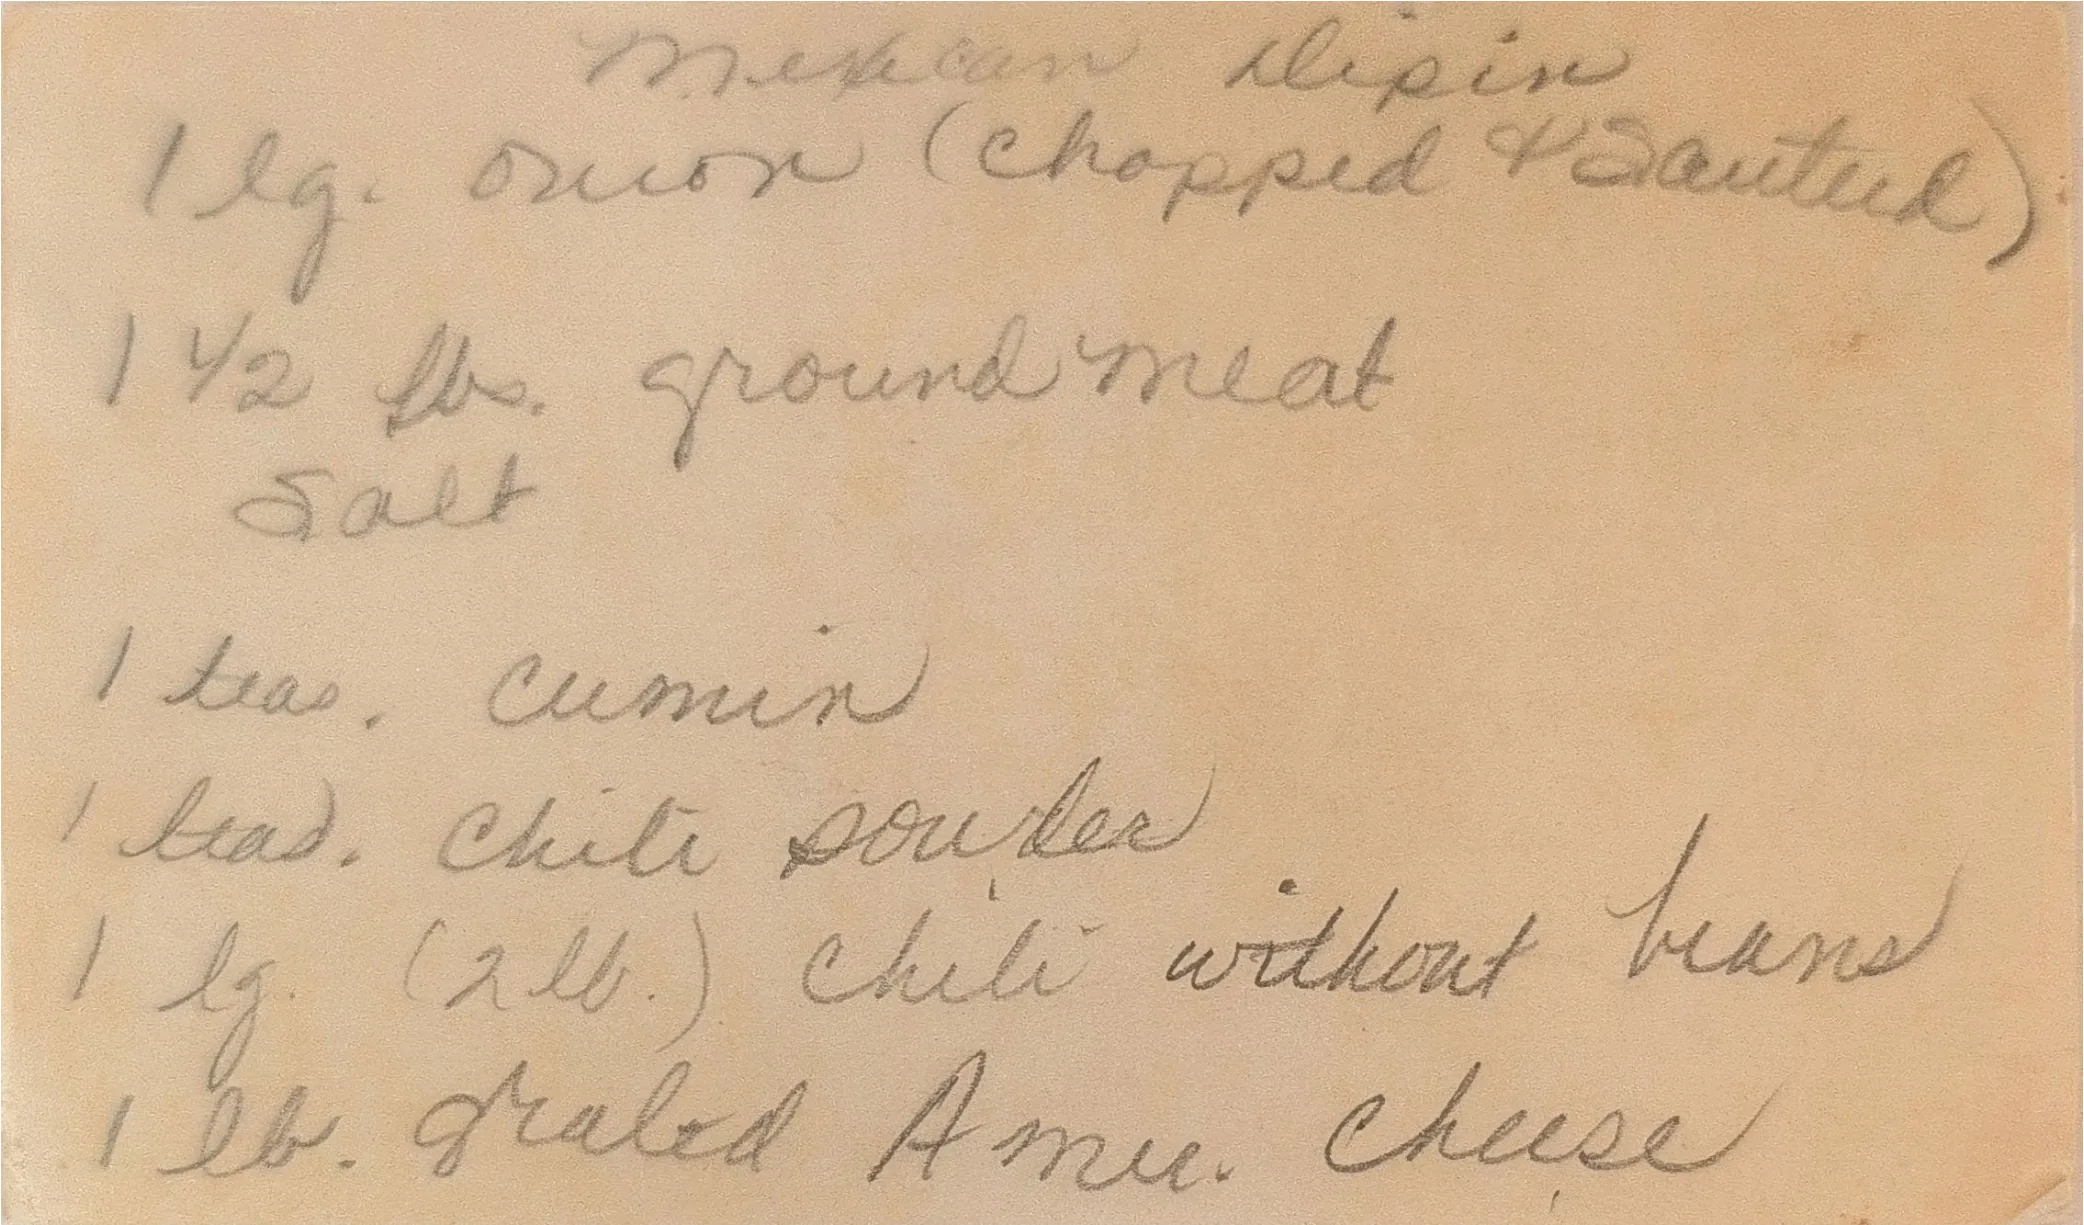 Mexican Dipin
1 lg. onion (chopped & Sauteed)
1 1/2 lbs. ground meat
Salt
1 teas. cumin
1 teas. chili powder
1 lg. (2 lb.) chili without beans
1 lb. grated Amer. cheese